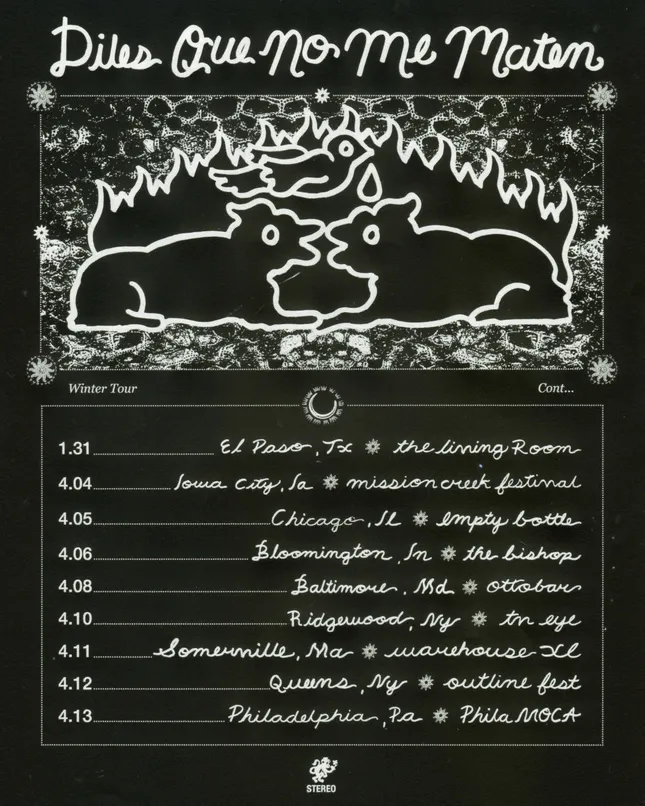 Diles Que no Me Maten
Winter Tour
Cont...
1.31 El Paso, Tx the living Room
4.04 Iowa City, Ia mission creek festival
4.05 Chicago, Il empty bottle
4.06 Bloomington, In the bishop
4.08 Baltimore, Md ottobar
4.10 Ridgewood, Ny tv eye
4.11 Somerville, Ma warehouse XI
4.12 Queens, Ny outline fest
4.13 Philadelphia, Pa Phila MOCA
STEREO